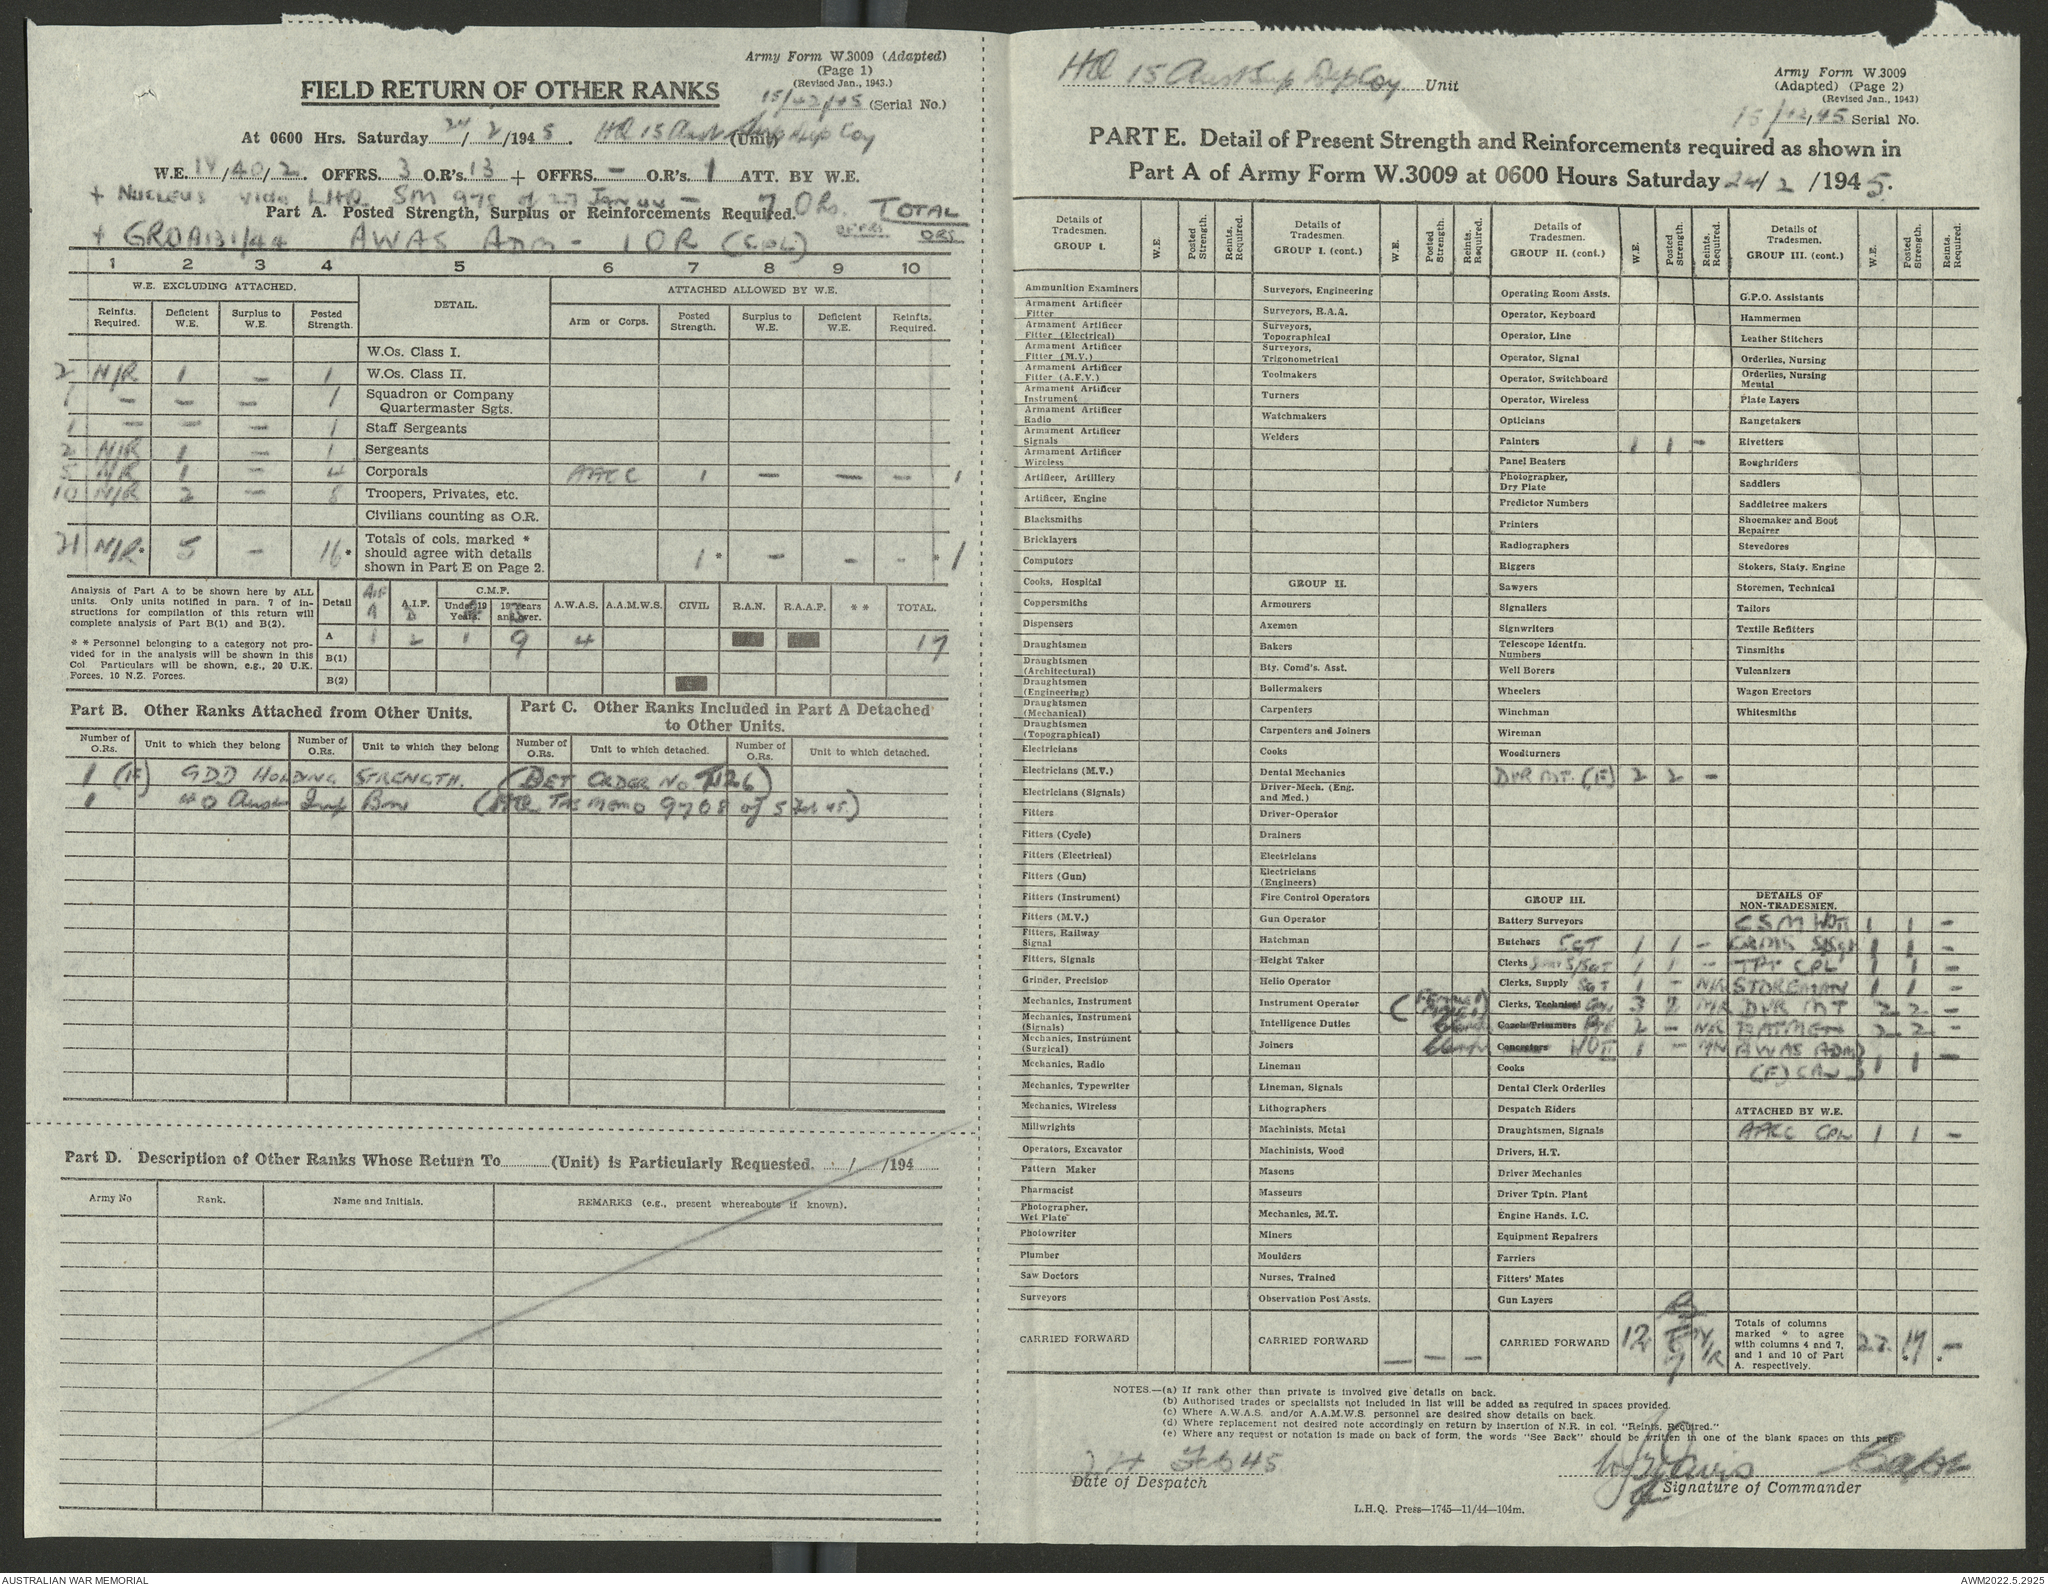 Army Form W.3009 (Adapted)
(Page 1)
(Revised Jan., 1943.)
15/42/45 (Serial No.)
FIELD RETURN OF OTHER RANKS
At 0600 Hrs. Saturday 24/2/1945. HQ 15 Aust Sup Dep Coy (Unit)
W.E. 14/40/2. OFFRS. 3 O.R's. 13 + OFFRS. – O.R's. 1 ATT. BY W.E.
+ NUCLEUS vide LHQ SM 975 of 27 Jan 44 – 7 ORs. TOTAL
Part A. Posted Strength, Surplus or Reinforcements Required.
+ GROA131/44 AWAS ADM – 1 OR (CPL) OFFRS ORS
1 2 3 4 5 6 7 8 9 10
W.E. EXCLUDING ATTACHED. DETAIL. ATTACHED ALLOWED BY W.E.
Reinfts. Required. Deficient W.E. Surplus to W.E. Posted Strength. Arm or Corps. Posted Strength. Surplus to W.E. Deficient W.E. Reinfts. Required.
W.Os. Class I.
2 N/R 1 – 1 W.Os. Class II.
1 – – – 1 Squadron or Company Quartermaster Sgts.
1 – – – 1 Staff Sergeants
2 N/R 1 – 1 Sergeants
5 N/R 1 – 4 Corporals AACC 1 – – – 1
10 N/R 2 – 8 Troopers, Privates, etc.
Civilians counting as O.R.
21 N/R* 5 – 16* Totals of cols. marked * should agree with details shown in Part E on Page 2. 1* – – – * 1
Analysis of Part A to be shown here by ALL units. Only units notified in para. 7 of instructions for compilation of this return will complete analysis of Part B(1) and B(2).
* * Personnel belonging to a category not provided for in the analysis will be shown in this Col Particulars will be shown, e.g., 20 U.K. Forces, 10 N.Z. Forces.
Detail AIF A A.I.F. B C.M.F. Under 19 Years. 19 Years and over. A.W.A.S. A.A.M.W.S. CIVIL R.A.N. R.A.A.F. * * TOTAL.
A 1 2 1 9 4 17
B(1)
B(2)
Part B. Other Ranks Attached from Other Units.
Part C. Other Ranks Included in Part A Detached to Other Units.
Number of O.Rs. Unit to which they belong Number of O.Rs. Unit to which they belong Number of O.Rs. Unit to which detached. Number of O.Rs. Unit to which detached.
1 (F) GDD HOLDING STRENGTH. (DET ORDER NO T1126)
1 40 Aust Inf Bn ( HQ TAS MEMO 9708 of 5 Feb 45)
Part D. Description of Other Ranks Whose Return To (Unit) is Particularly Requested. / /194
Army No Rank. Name and Initials. REMARKS (e.g., present whereabouts if known).
HQ 15 Aust Sup Dep Coy Unit
Army Form W.3009
(Adapted) (Page 2)
(Revised Jan., 1943)
15/42/45 Serial No.
PART E. Detail of Present Strength and Reinforcements required as shown in
Part A of Army Form W.3009 at 0600 Hours Saturday 24/2/1945.
Details of Tradesmen. GROUP I. W.E. Posted Strength. Reints. Required.
Ammunition Examiners
Armament Artificer Fitter
Armament Artificer Fitter (Electrical)
Armament Artificer Fitter (M.V.)
Armament Artificer Fitter (A.F.V.)
Armament Artificer Instrument
Armament Artificer Radio
Armament Artificer Signals
Armament Artificer Wireless
Artificer, Artillery
Artificer, Engine
Blacksmiths
Bricklayers
Computors
Cooks, Hospital
Coppersmiths
Dispensers
Draughtsmen
Draughtsmen (Architectural)
Draughtsmen (Engineering)
Draughtsmen (Mechanical)
Draughtsmen (Topographical)
Electricians
Electricians (M.V.)
Electricians (Signals)
Fitters
Fitters (Cycle)
Fitters (Electrical)
Fitters (Gun)
Fitters (Instrument)
Fitters (M.V.)
Fitters, Railway Signal
Fitters, Signals
Grinder, Precision
Mechanics, Instrument
Mechanics, Instrument (Signals)
Mechanics, Instrument (Surgical)
Mechanics, Radio
Mechanics, Typewriter
Mechanics, Wireless
Millwrights
Operators, Excavator
Pattern Maker
Pharmacist
Photographer, Wet Plate
Photowriter
Plumber
Saw Doctors
Surveyors
CARRIED FORWARD
Details of Tradesmen. GROUP I. (cont.) W.E. Posted Strength. Reints. Required.
Surveyors, Engineering
Surveyors, R.A.A.
Surveyors, Topographical
Surveyors, Trigonometrical
Toolmakers
Turners
Watchmakers
Welders
GROUP II.
Armourers
Axemen
Bakers
Bty. Comd's. Asst.
Boilermakers
Carpenters
Carpenters and Joiners
Cooks
Dental Mechanics
Driver-Mech. (Eng. and Med.)
Driver-Operator
Drainers
Electricians
Electricians (Engineers)
Fire Control Operators
Gun Operator
Hatchman
Height Taker
Helio Operator
Instrument Operator
Intelligence Duties
Joiners
Lineman
Lineman, Signals
Lithographers
Machinists, Metal
Machinists, Wood
Masons
Masseurs
Mechanics, M.T.
Miners
Moulders
Nurses, Trained
Observation Post Assts.
CARRIED FORWARD – – –
Details of Tradesmen. GROUP II. (cont.) W.E. Posted Strength. Reints. Required.
Operating Room Assts.
Operator, Keyboard
Operator, Line
Operator, Signal
Operator, Switchboard
Operator, Wireless
Opticians
Painters 1 1 –
Panel Beaters
Photographer, Dry Plate
Predictor Numbers
Printers
Radiographers
Riggers
Sawyers
Signallers
Signwriters
Telescope Identfn. Numbers
Well Borers
Wheelers
Winchman
Wireman
Woodturners
DVR MT. (F) 2 2 –
GROUP III.
Battery Surveyors
Butchers SGT 1 1 –
Clerks S/SGT 1 1 –
Clerks, Supply SGT 1 – N/R
Clerks, Technical 3 2 N/R
Coach Trimmers 2 – N/R
Concretors WOII 1 – N/R
Cooks
Dental Clerk Orderlies
Despatch Riders
Draughtsmen, Signals
Drivers, H.T.
Driver Mechanics
Driver Tptn. Plant
Engine Hands, I.C.
Equipment Repairers
Farriers
Fitters' Mates
Gun Layers
CARRIED FORWARD 12 7 N/R
Details of Tradesmen. GROUP III. (cont.) W.E. Posted Strength. Reints. Required.
G.P.O. Assistants
Hammermen
Leather Stitchers
Orderlies, Nursing
Orderlies, Nursing Mental
Plate Layers
Rangetakers
Rivetters
Roughriders
Saddlers
Saddletree makers
Shoemaker and Boot Repairer
Stevedores
Stokers, Staty. Engine
Storemen, Technical
Tailors
Textile Refitters
Tinsmiths
Vulcanizers
Wagon Erectors
Whitesmiths
DETAILS OF NON-TRADESMEN.
CSM WOII 1 1 –
CQMS S/Sgt 1 1 –
CPL 1 1 –
STOREMAN 1 1 –
DVR MT 2 2 –
BATMEN 2 2 –
AWAS ADM
(F) CPL 1 1 –
ATTACHED BY W.E.
AACC CPL 1 1 –
Totals of columns marked * to agree with columns 4 and 7, and 1 and 10 of Part A. respectively. 22 17 –
NOTES.—(a) If rank other than private is involved give details on back.
(b) Authorised trades or specialists not included in list will be added as required in spaces provided.
(c) Where A.W.A.S. and/or A.A.M.W.S. personnel are desired show details on back.
(d) Where replacement not desired note accordingly on return by insertion of N.R. in col. "Reints. Required."
(e) Where any request or notation is made on back of form, the words "See Back" should be written in one of the blank spaces on this page
24 Feb 45
Date of Despatch
Davis Capt
Signature of Commander
L.H.Q. Press—1745—11/44—104m.
AUSTRALIAN WAR MEMORIAL
AWM2022.5.2925